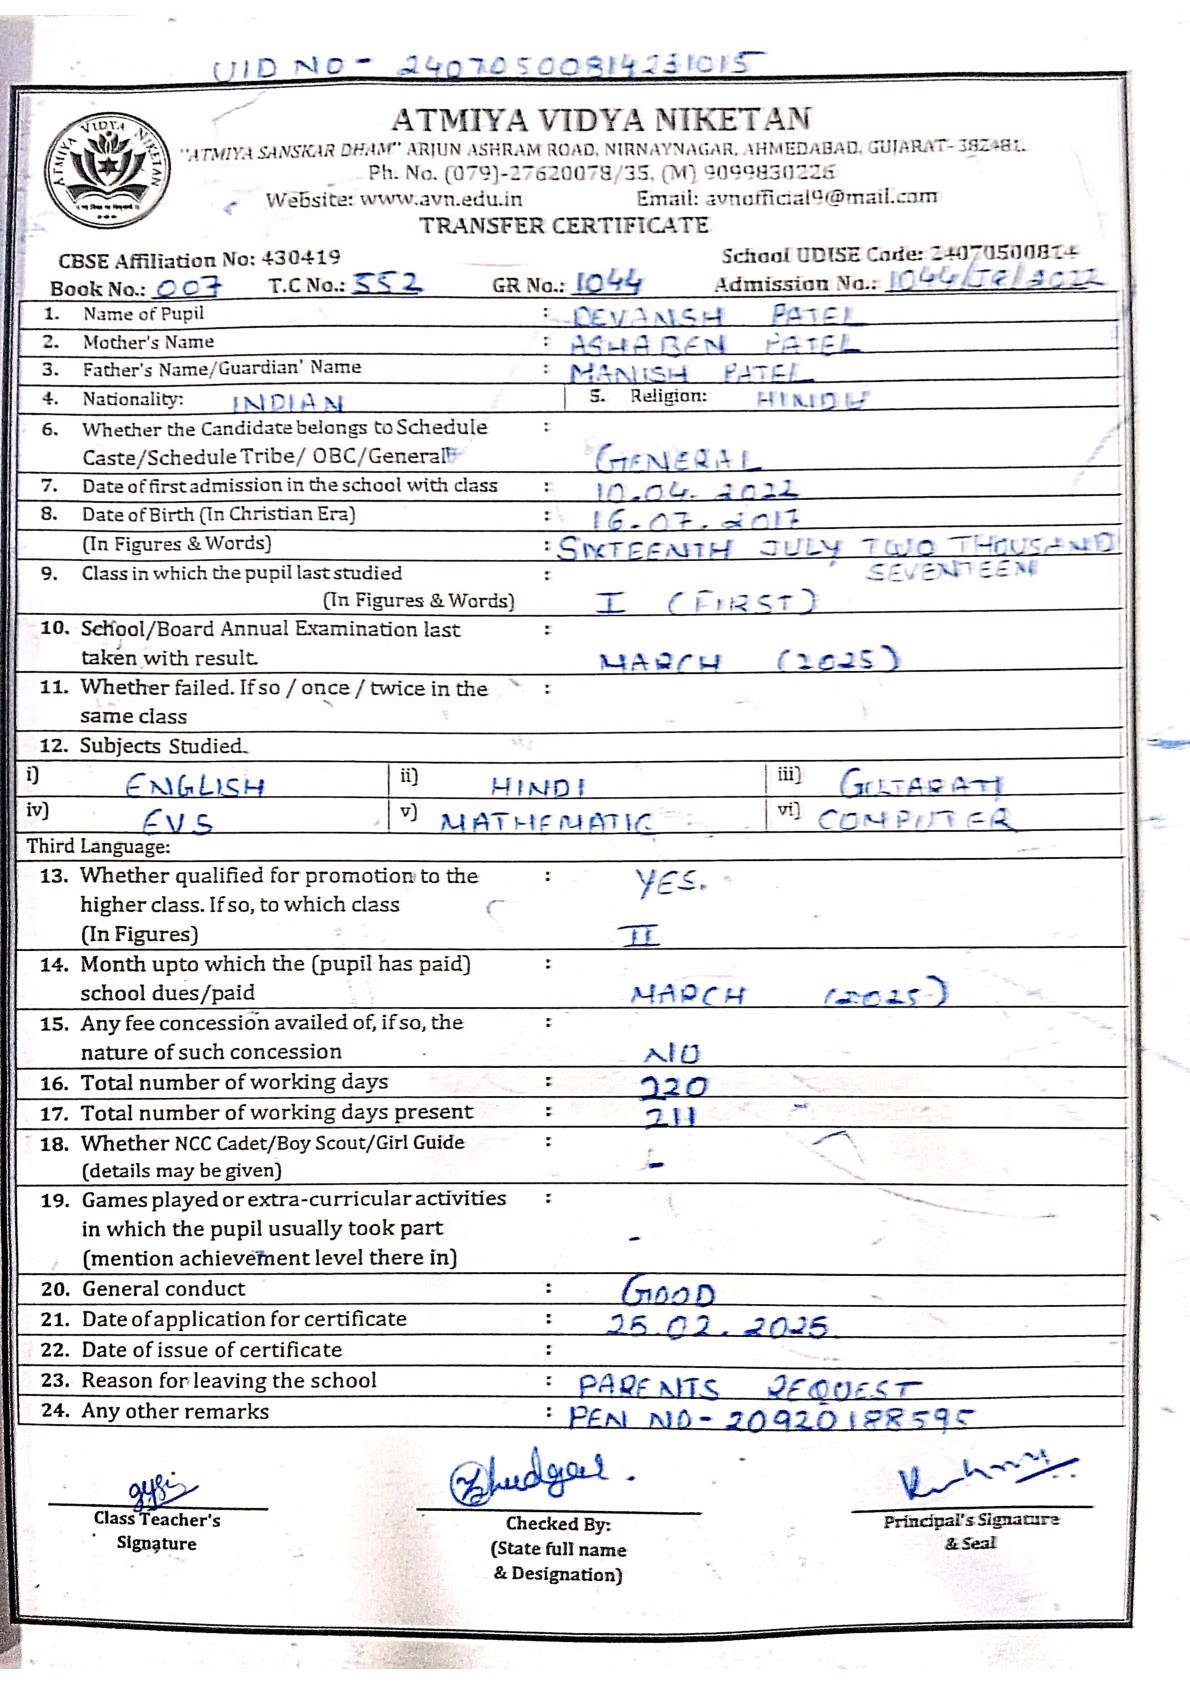 UID NO - 24070500814231015
ATMIYA VIDYA NIKETAN
ATMIYA VIDYA NIKETAN
"ATMIYA SANSKAR DHAM" ARJUN ASHRAM ROAD, NIRNAYNAGAR, AHMEDABAD, GUJARAT- 382481.
Ph. No. (079)-27620078/35, (M) 9099830226
Website: www.avn.edu.in Email: avnofficial9@mail.com
TRANSFER CERTIFICATE
CBSE Affiliation No: 430419 School UDISE Code: 24070500814
Book No.: 007 T.C No.: 552 GR No.: 1044 Admission No.: 1044/JR/2022
1. Name of Pupil : DEVANSH PATEL
2. Mother's Name : ASHABEN PATEL
3. Father's Name/Guardian' Name : MANISH PATEL
4. Nationality: INDIAN 5. Religion: HINDU
6. Whether the Candidate belongs to Schedule :
Caste/Schedule Tribe/ OBC/General GENERAL
7. Date of first admission in the school with class : 10.04.2022
8. Date of Birth (In Christian Era) : 16.07.2017
(In Figures & Words) : SIXTEENTH JULY TWO THOUSAND
9. Class in which the pupil last studied : SEVENTEEN
(In Figures & Words) I (FIRST)
10. School/Board Annual Examination last :
taken with result. MARCH (2025)
11. Whether failed. If so / once / twice in the :
same class
12. Subjects Studied.
i) ENGLISH ii) HINDI iii) GUJARATI
iv) EVS v) MATHEMATIC vi) COMPUTER
Third Language:
13. Whether qualified for promotion to the : YES.
higher class. If so, to which class
(In Figures) II
14. Month upto which the (pupil has paid) :
school dues/paid MARCH (2025)
15. Any fee concession availed of, if so, the :
nature of such concession NO
16. Total number of working days : 220
17. Total number of working days present : 211
18. Whether NCC Cadet/Boy Scout/Girl Guide :
(details may be given) -
19. Games played or extra-curricular activities :
in which the pupil usually took part -
(mention achievement level there in)
20. General conduct : GOOD
21. Date of application for certificate : 25.02.2025
22. Date of issue of certificate :
23. Reason for leaving the school : PARENTS REQUEST
24. Any other remarks : PEN NO - 20920188595
Class Teacher's
Signature
Checked By:
(State full name
& Designation)
Principal's Signature
& Seal